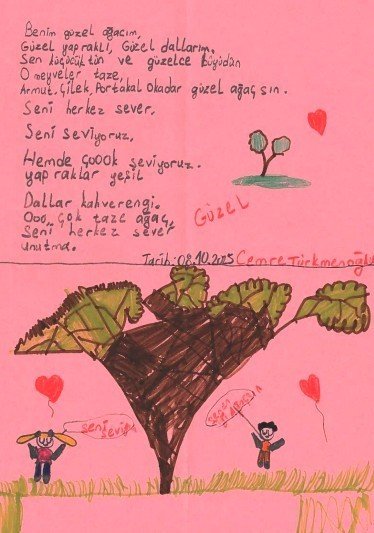 Benim güzel ağacım,
Güzel yapraklı, Güzel dallarım,
Sen küçücüktün ve güzelce büyüdün
O meyveler taze,
Armut, Çilek, Portakal Okadar güzel ağaç sın.
Seni herkez sever,
Seni seviyoruz,
Hemde çoook seviyoruz.
yapraklar yeşil
Dallar kahverengi.
Ooo, çok taze ağaç,
Seni herkez sever
unutma.
GÜZEL
Tarih: 08.10.2015 Cemre Türkmenoğlu
seni